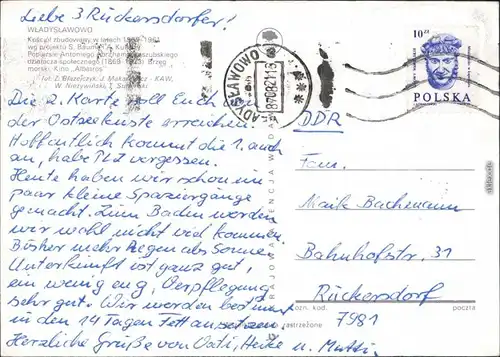 Liebe 3 Rückersdorfer!
WŁADYSŁAWOWO
Kościół zbudowany w latach
wg projektu S. Bauma
Popiersie Antoniego kaszubskiego
działacza społecznego Brzeg
morski. Kino „Albatros”
fot. Z. Błażejczyk, J. Makarewicz - KAW,
W. Niezywiński, T. Sumiński
10 zł
POLSKA
WŁADYSŁAWOWO
Die 2. Karte soll Euch von
der Ostseeküste erreichen.
Hoffentlich kommt die 1. auch
an, habe PLZ vergessen.
Heute haben wir schon ein
paar kleine Spaziergänge
gemacht. Zum Baden werden
wir wohl nicht viel kommen.
Bisher mehr Regen als Sonne.
Unterkunft ist ganz gut,
ein wenig eng, Verpflegung
sehr gut. Wir werden bestimmt
in den 14 Tagen Fett ansetzen.
Herzliche Grüße von Vati, Heike u. Mutti.
KRAJOWA AGENCJA WYDAWNICZA
zastrzeżone
DDR
Fam.
Maik Bachmann
Bahnhofstr. 31
Rückersdorf
ozn. kod. poczta
7981